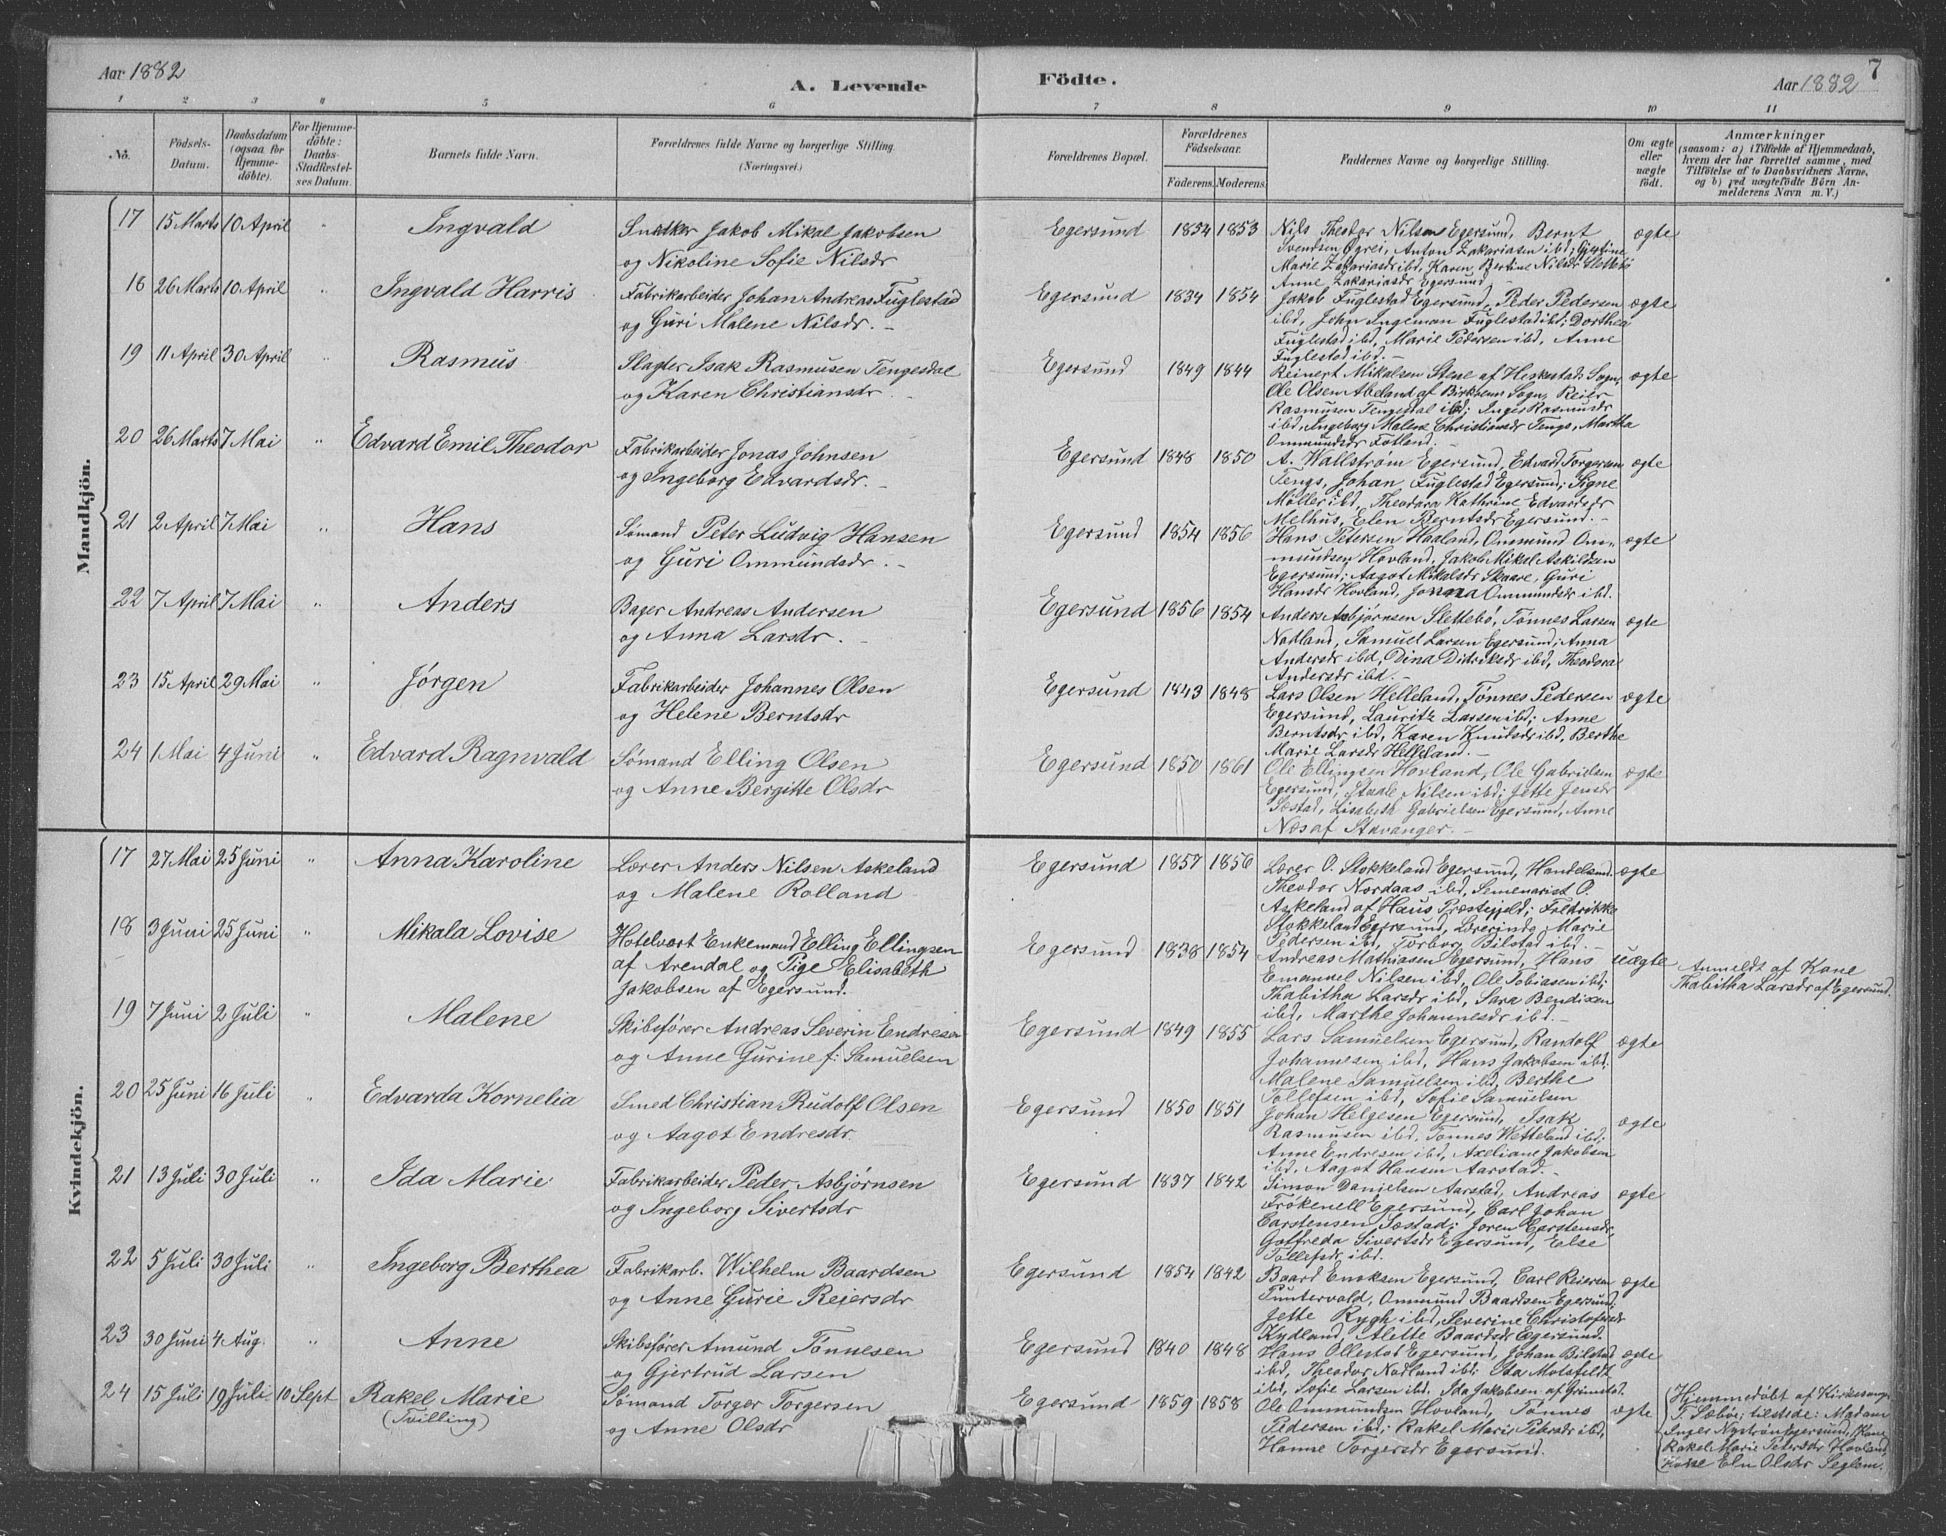 Aar 1882
A. Levende
Födte.
7
Aar 1882
1 2 3 4 5 6 7 8 9 10 11
No.
Födsels-
Datum.
Daabsdatum
(ogsaa for
Hjemme-
döbte).
For Hjemme-
döbte:
Daabs-
Stadfæstel-
ses Datum.
Barnets fulde Navn.
Forældrenes fulde Navne og borgerlige Stilling.
(Næringsvei.)
Forældrenes Bopæl.
Forældrenes
Födselsaar.
Faderens. Moderens.
Faddernes Navne og borgerlige Stilling.
Om ægte
eller
uægte
födt.
Anmærkninger
(saasom: a) i Tilfælde af Hjemmedaab,
hvem der har forrettet samme, med
Tilföielse af to Daabsvidners Navne,
og b) ved uægtefödte Börn An-
melderens Navn m. V.)
Mandkjön.
17 15 Marts 10 April " Ingvald Snedker Jakob Mikal Jakobsen
og Nikoline Sofie Nilsdr
Egersund 1854 1853 Nils Theodor Nilsen Egersund, Bernt
Svendsen Ögrei, Anton Zakariasen ibd; Gjertine
Marie Zakariasdr ibd, Karen Bertine Nilsdr Slettebö
Anne Zakariasdr Egersund
ægte
18 26 Marts 10 April " Ingvald Harris Fabrikarbeider Johan Andreas Fuglestad
og Guri Malene Nilsdr. -
Egersund 1834 1854 Jakob Fuglestad Egersund, Peder Pedersen
ibd, John Ingeman Fuglestad ibd; Dorthea
Fuglestad ibd, Marie Pedersen ibd, Anne
Fuglestad ibd. -
ægte
19 11 April 30 April " Rasmus Slagter Isak Rasmusen Tengesdal
og Karen Christiansdr. -
Egersund 1849 1844 Reinert Mikalsen Stene af Heskestad Sogn,
Ole Olsen Abeland af Birkrem Sogn, Reier
Rasmusen Tengesdal ibd; Inger Rasmusdr
ibd, Ingeborg Malene Christiansdr Tengs, Martha
Ommundsdr Fotland. -
ægte
20 26 Marts 7 Mai " Edvard Emil Theodor Fabrikarbeider Jonas Johnsen
og Ingeborg Edvardsdr. -
Egersund 1848 1850 A. Wallström Egersund, Edvard Torgersen
Tengs, Johan Fuglestad Egersund; Signe
Möller ibd, Theodora Kathrine Edvardsdr
Melhus, Elen Berntsdr Egersund. -
ægte
21 2 April 7 Mai " Hans Sømand Peter Ludvig Hansen
og Guri Ommundsdr. -
Egersund 1854 1856 Hans Petersen Haaland, Ommund Om-
mundsen Hovland, Jakob Mikal Askildsen
Egersund; Aagot Mikalsdr Skaare, Guri
Hansdr Hovland, Jonna Ommundsdr ibd.
ægte
22 7 April 7 Mai " Anders Bager Andreas Andersen
og Anna Larsdr. -
Egersund 1856 1854 Anders Asbjørnsen Slettebö, Tönnes Larsen
Nodland, Samuel Larsen Egersund; Anna
Andersdr ibd, Dina Didriksdr ibd, Theodora
Andersdr ibd. -
ægte
23 15 April 29 Mai " Jørgen Fabrikarbeider Johannes Olsen
og Helene Berntsdr
Egersund 1843 1848 Lars Olsen Helleland, Tønnes Pedersen
Egersund, Lauritz Larsen ibd; Anne
Berntsdr ibd, Karen Knutsdr ibd, Berthe
Marie Larsdr Helleland. -
ægte
24 1 Mai 4 Juni " Edvard Ragnvald Sømand Elling Olsen
og Anne Bergitte Olsdr
Egersund 1850 1861 Ole Ellingsen Hovland, Ole Gabrielsen
Egersund, Staale Nilsen ibd; Jette Jensdr
Søstad, Lisabeth Gabrielsen Egersund, Anne
Næs af Stavanger. -
ægte
Kvindekjön.
17 27 Mai 25 Juni " Anna Karoline Lærer Anders Nilsen Askeland
og Malene Rolland
Egersund 1857 1856 Lærer O. Stokkeland Egersund, Handelsmd
Theodor Nordaas ibd, Semenarist O.
Askeland af Haus Præstegjeld; Fredrikke
Stokkeland Egersund, Lærerinde Marie
Pedersen ibd, Torborg Bilstad ibd. -
ægte
18 3 Juni 25 Juni " Mikala Lovise Hotelvært Enkemand Elling Ellingsen
af Arendal og Pige Elisabeth
Jakobsen af Egersund.
Egersund 1838 1854 Andreas Mathiasen Egersund, Hans
Emanuel Nilsen ibd, Ole Tobiasen ibd;
Thabitha Larsdr ibd, Sara Bendixen
ibd, Marthe Johannesdr ibd. -
uægte Anmeldt af Kone
Thabitha Larsdr af Egersund.
19 7 Juni 2 Juli " Malene Skibsfører Andreas Severin Endresen
og Anne Gurine f: Samuelsen
Egersund 1849 1855 Lars Samuelsen Egersund, Randolf
Johannesen ibd, Hans Jakobsen ibd.
Malene Samuelsen ibd, Berthe
Tollefsen ibd, Sofie Samuelsen
ægte
20 25 Juni 16 Juli " Edvarda Kornelia Smed Christian Rudolf Olsen
og Aagot Endresdr.
Egersund 1850 1851 Johan Helgesen Egersund, Isak
Rasmusen ibd, Tönnes Wetteland ibd;
Anne Endresen ibd, Axeliane Jakobsen
ibd, Aagot Hansen Aarstad. -
ægte
21 13 Juli 30 Juli " Ida Marie Fabrikarbeider Peder Asbjørnsen
og Ingeborg Sivertsdr
Egersund 1837 1842 Simon Danielsen Aarstad, Andreas
Frökenell Egersund, Carl Johan
Carstensen Søstad; Joren Carstensdr,
Gotfreda Sivertsdr Egersund, Else
Tollefsdr ibd.
ægte
22 5 Juli 30 Juli " Ingeborg Berthea Fabrikarb. Wilhelm Baardsen
og Anne Gurie Reiersdr
Egersund 1854 1842 Baard Enoksen Egersund, Carl Reiersen
Puntervold, Ommund Baardsen Egersund;
Jette Rygh ibd, Severine Christofersdr
Kydland, Alette Baardsdr Egersund.
ægte
23 30 Juni 4 Aug. " Anne Skibsfører Amund Tønnesen
og Gjertrud Larsen
Egersund 1840 1848 Hans Ollestad Egersund, Johan Bilstad
ibd, Theodor Nodland ibd; Ida Motzfeldt
ibd, Sofie Larsen ibd. Ida Jakobsen af Grimstad.
ægte
24 15 Juli 19 Juli 10 Sept Rakel Marie
(Tvilling)
Sømand Torger Torgersen
og Anne Olsdr
Egersund 1859 1858 Ole Ommundsen Hovland, Tønnes
Pedersen ibd; Rakel Marie Petersdr ibd,
Hanne Torgersdr Egersund.
ægte Hjemmedøbt af Kirkesanger
T. Sæbø; tilstede: Madam
Inger Nystrøm Egersund, Kone
Rakel Marie Petersdr Hovland,
Kone Eln Olsdr Seglem.